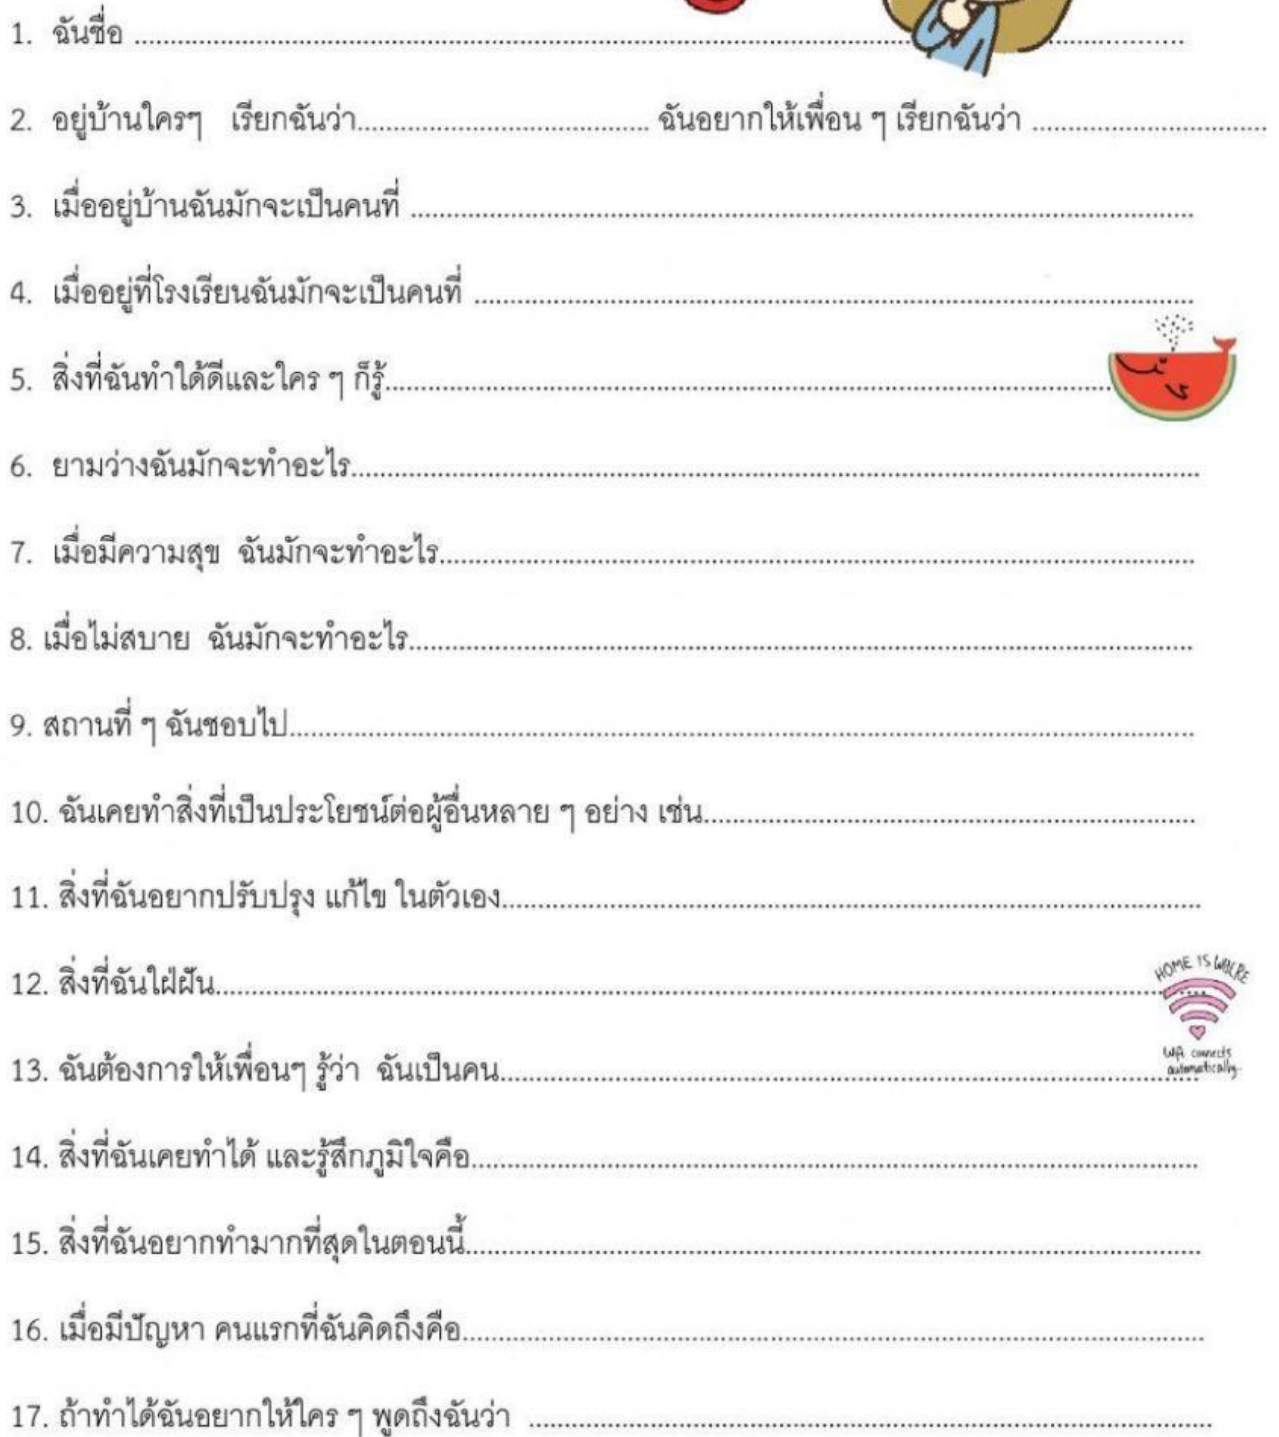 1. ฉันชื่อ ........................................................................
2. อยู่บ้านใครๆ เรียกฉันว่า.................................... ฉันอยากให้เพื่อน ๆ เรียกฉันว่า .............................
3. เมื่ออยู่บ้านฉันมักจะเป็นคนที่ ........................................................................
4. เมื่ออยู่ที่โรงเรียนฉันมักจะเป็นคนที่ ........................................................................
5. สิ่งที่ฉันทำได้ดีและใคร ๆ ก็รู้........................................................................
6. ยามว่างฉันมักจะทำอะไร........................................................................
7. เมื่อมีความสุข ฉันมักจะทำอะไร........................................................................
8. เมื่อไม่สบาย ฉันมักจะทำอะไร........................................................................
9. สถานที่ ๆ ฉันชอบไป........................................................................
10. ฉันเคยทำสิ่งที่เป็นประโยชน์ต่อผู้อื่นหลาย ๆ อย่าง เช่น............................................................
11. สิ่งที่ฉันอยากปรับปรุง แก้ไข ในตัวเอง........................................................................
12. สิ่งที่ฉันใฝ่ฝัน........................................................................
HOME IS WHERE
Wifi connects
automatically.
13. ฉันต้องการให้เพื่อนๆ รู้ว่า ฉันเป็นคน........................................................................
14. สิ่งที่ฉันเคยทำได้ และรู้สึกภูมิใจคือ........................................................................
15. สิ่งที่ฉันอยากทำมากที่สุดในตอนนี้........................................................................
16. เมื่อมีปัญหา คนแรกที่ฉันคิดถึงคือ........................................................................
17. ถ้าทำได้ฉันอยากให้ใคร ๆ พูดถึงฉันว่า ........................................................................